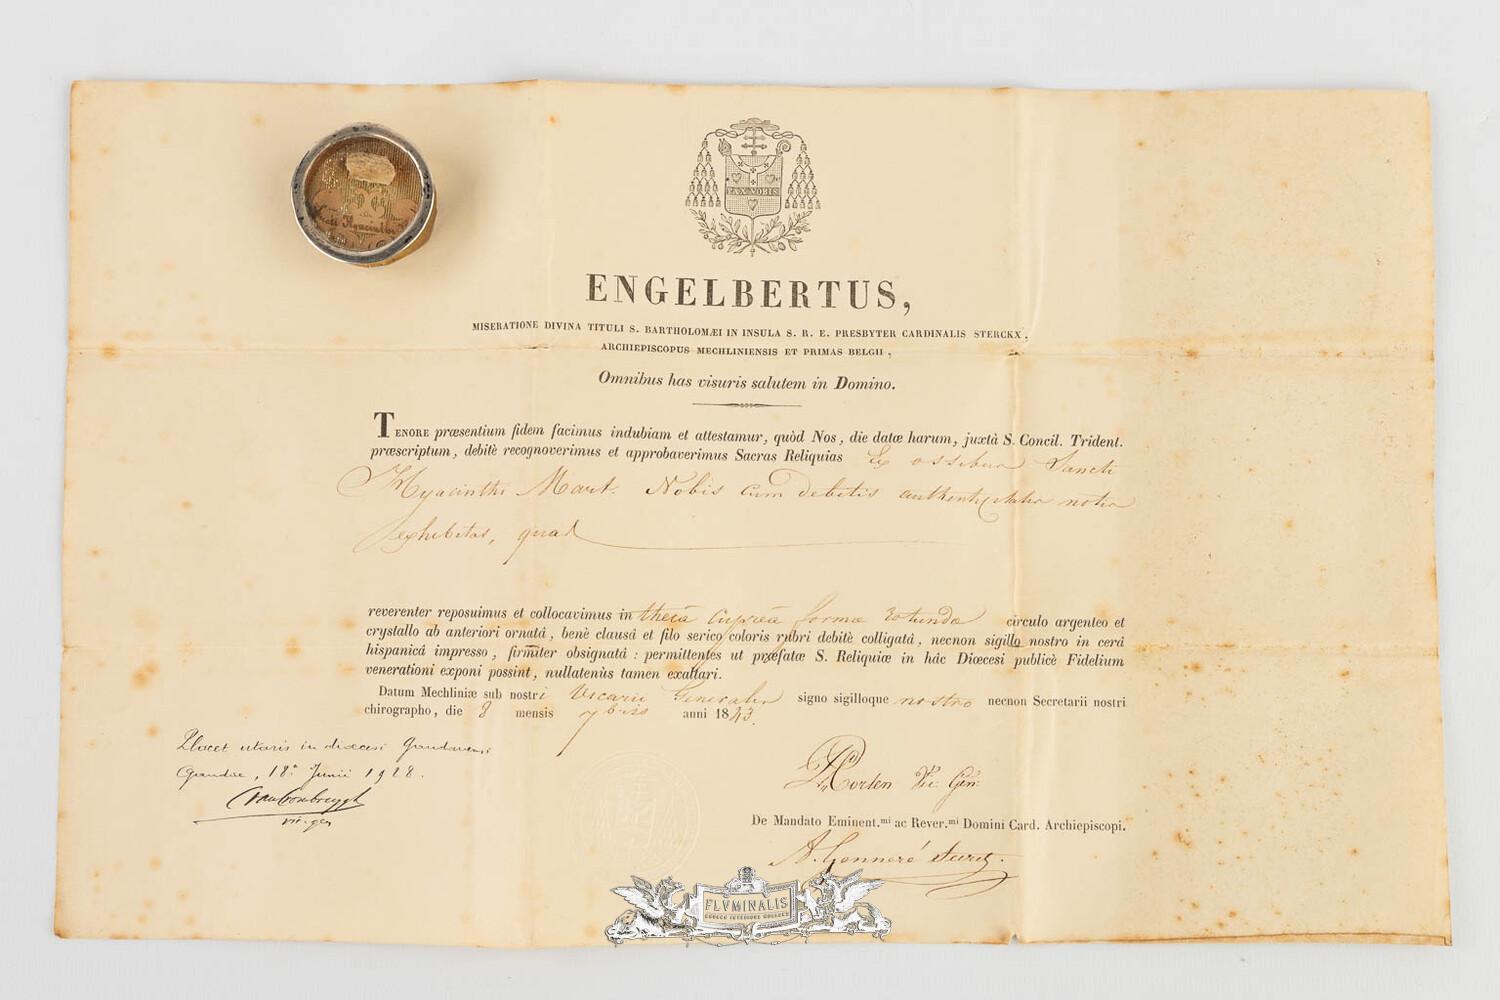 PAX NOBIS
ENGELBERTUS,
MISERATIONE DIVINA TITULI S. BARTHOLOMÆI IN INSULA S. R. E. PRESBYTER CARDINALIS STERCKX,
ARCHIEPISCOPUS MECHLINIENSIS ET PRIMAS BELGII,
Omnibus has visuris salutem in Domino.
TENORE præsentium fidem facimus indubiam et attestamur, quòd Nos, die datæ harum, juxtà S. Concil. Trident.
præscriptum, debitè recognoverimus et approbaverimus Sacras Reliquias Ex ossibus Sancti
Hyacinthi Mart. Nobis cum debitis authenticitatis notis
exhibitas, quas
reverenter reposuimus et collocavimus in thecâ cupreâ formæ rotundæ circulo argenteo et
crystallo ab anteriori ornatâ, benè clausâ et filo serico coloris rubri debitè colligatâ, necnon sigillo nostro in cerâ
hispanicâ impresso, firmiter obsignatâ : permittentes ut præfatæ S. Reliquiæ in hâc Diœcesi publicè Fidelium
venerationi exponi possint, nullatenùs tamen exaltari.
Datum Mechliniæ sub nostri Vicarii Generalis signo sigilloque nostro necnon Secretarii nostri
chirographo, die 8 mensis 7bris anni 1843.
Placet utaris in diœcesi Gandavensi
Gandæ, 18a Junii 1928.
vic. gen
Vic. Gen.
De Mandato Eminent.mi ac Rever.mi Domini Card. Archiepiscopi.
A. Genneré Secret.
FLVMINALIS